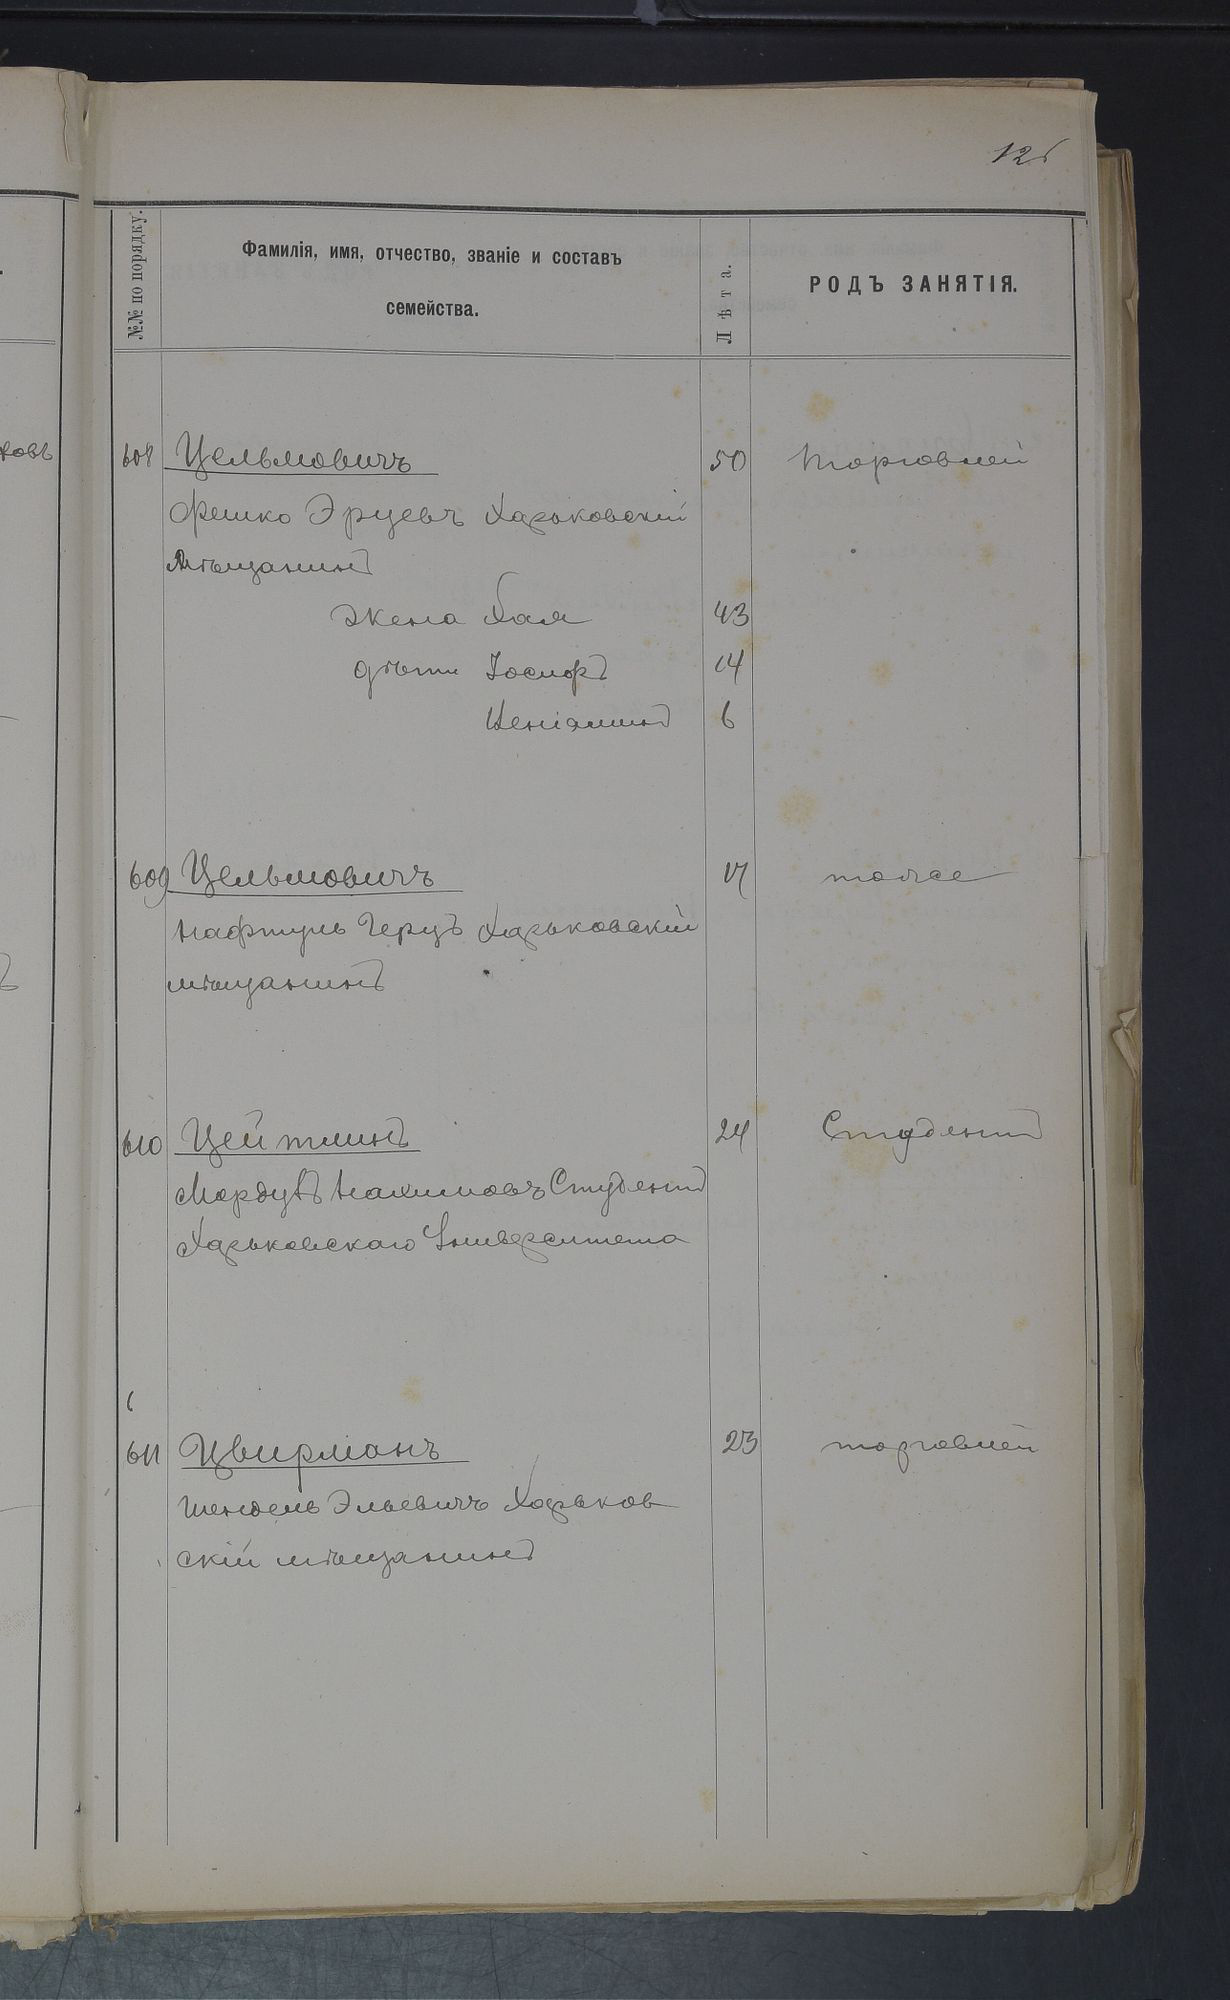 126
№№ по порядку.
Фамилія, имя, отчество, званіе и составъ
семейства.
Лѣта.
РОДЪ ЗАНЯТІЯ.
ковъ
608 Цельмовичъ 50 торговлей
Фешко Эрцевъ Харьковскій
Мѣщанинъ
Жена Хая 43
дѣти Іосифъ 14
Веніаминъ 6
609 Цельмовичъ 17 тоже
Нафтуль Герцъ Харьковскій
мѣщанинъ
610 Цейтлинъ 24 Студентъ
Мордухъ Нахимовъ Студентъ
Харьковскаго Университета
611 Цвирманъ 23 торговлей
Шендель Эльевичъ Харьков
скій мѣщанинъ